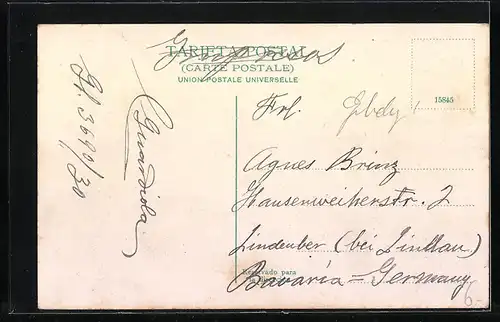 TARJETA POSTAL
(CARTE POSTALE)
UNION POSTALE UNIVERSELLE
15845
Guardiola
Frl.
Agnes Brinz
Hausenweiherstr. 2
Lindenber (bei Lindau)
Reservado para
Bavaria - Germany
6.-